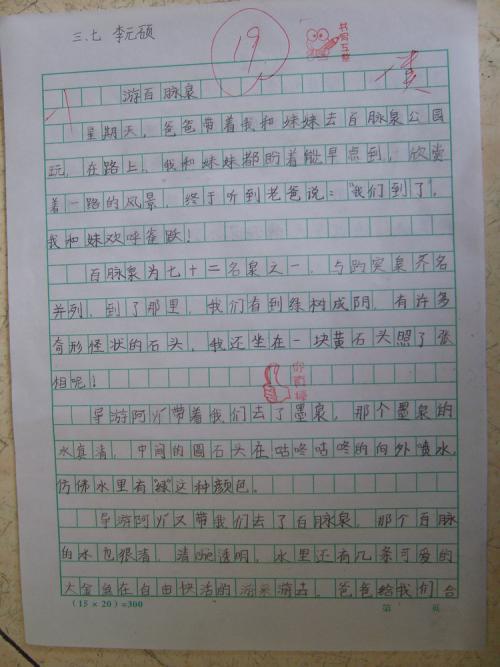 三.七 李元硕
19
书写工整
游百脉泉
星期天，爸爸带着我和妹妹去百脉泉公园
玩，在路上，我和妹妹都盼着能早点到，欣赏
着一路的风景，终于听到老爸说："我们到了"，
我和妹欢呼雀跃！
百脉泉为七十二名泉之一，与趵突泉齐名
并列，到了那里，我们看到绿树成阴，有许多
奇形怪状的石头，我还坐在一块黄石头照了张
相呢！
你真棒
导游阿姨带着我们去了墨泉，那个墨泉的
水真清，中间的圆石头在咕咚咕咚的向外喷水，
仿佛水里有"绿"这种颜色。
导游阿姨又带我们去了百脉泉，那个百脉
的水也很清，清晰透明，水里还有几条可爱的
大金鱼在自由快活的游来游去。爸爸给我们合
(15×20)=300
第 页